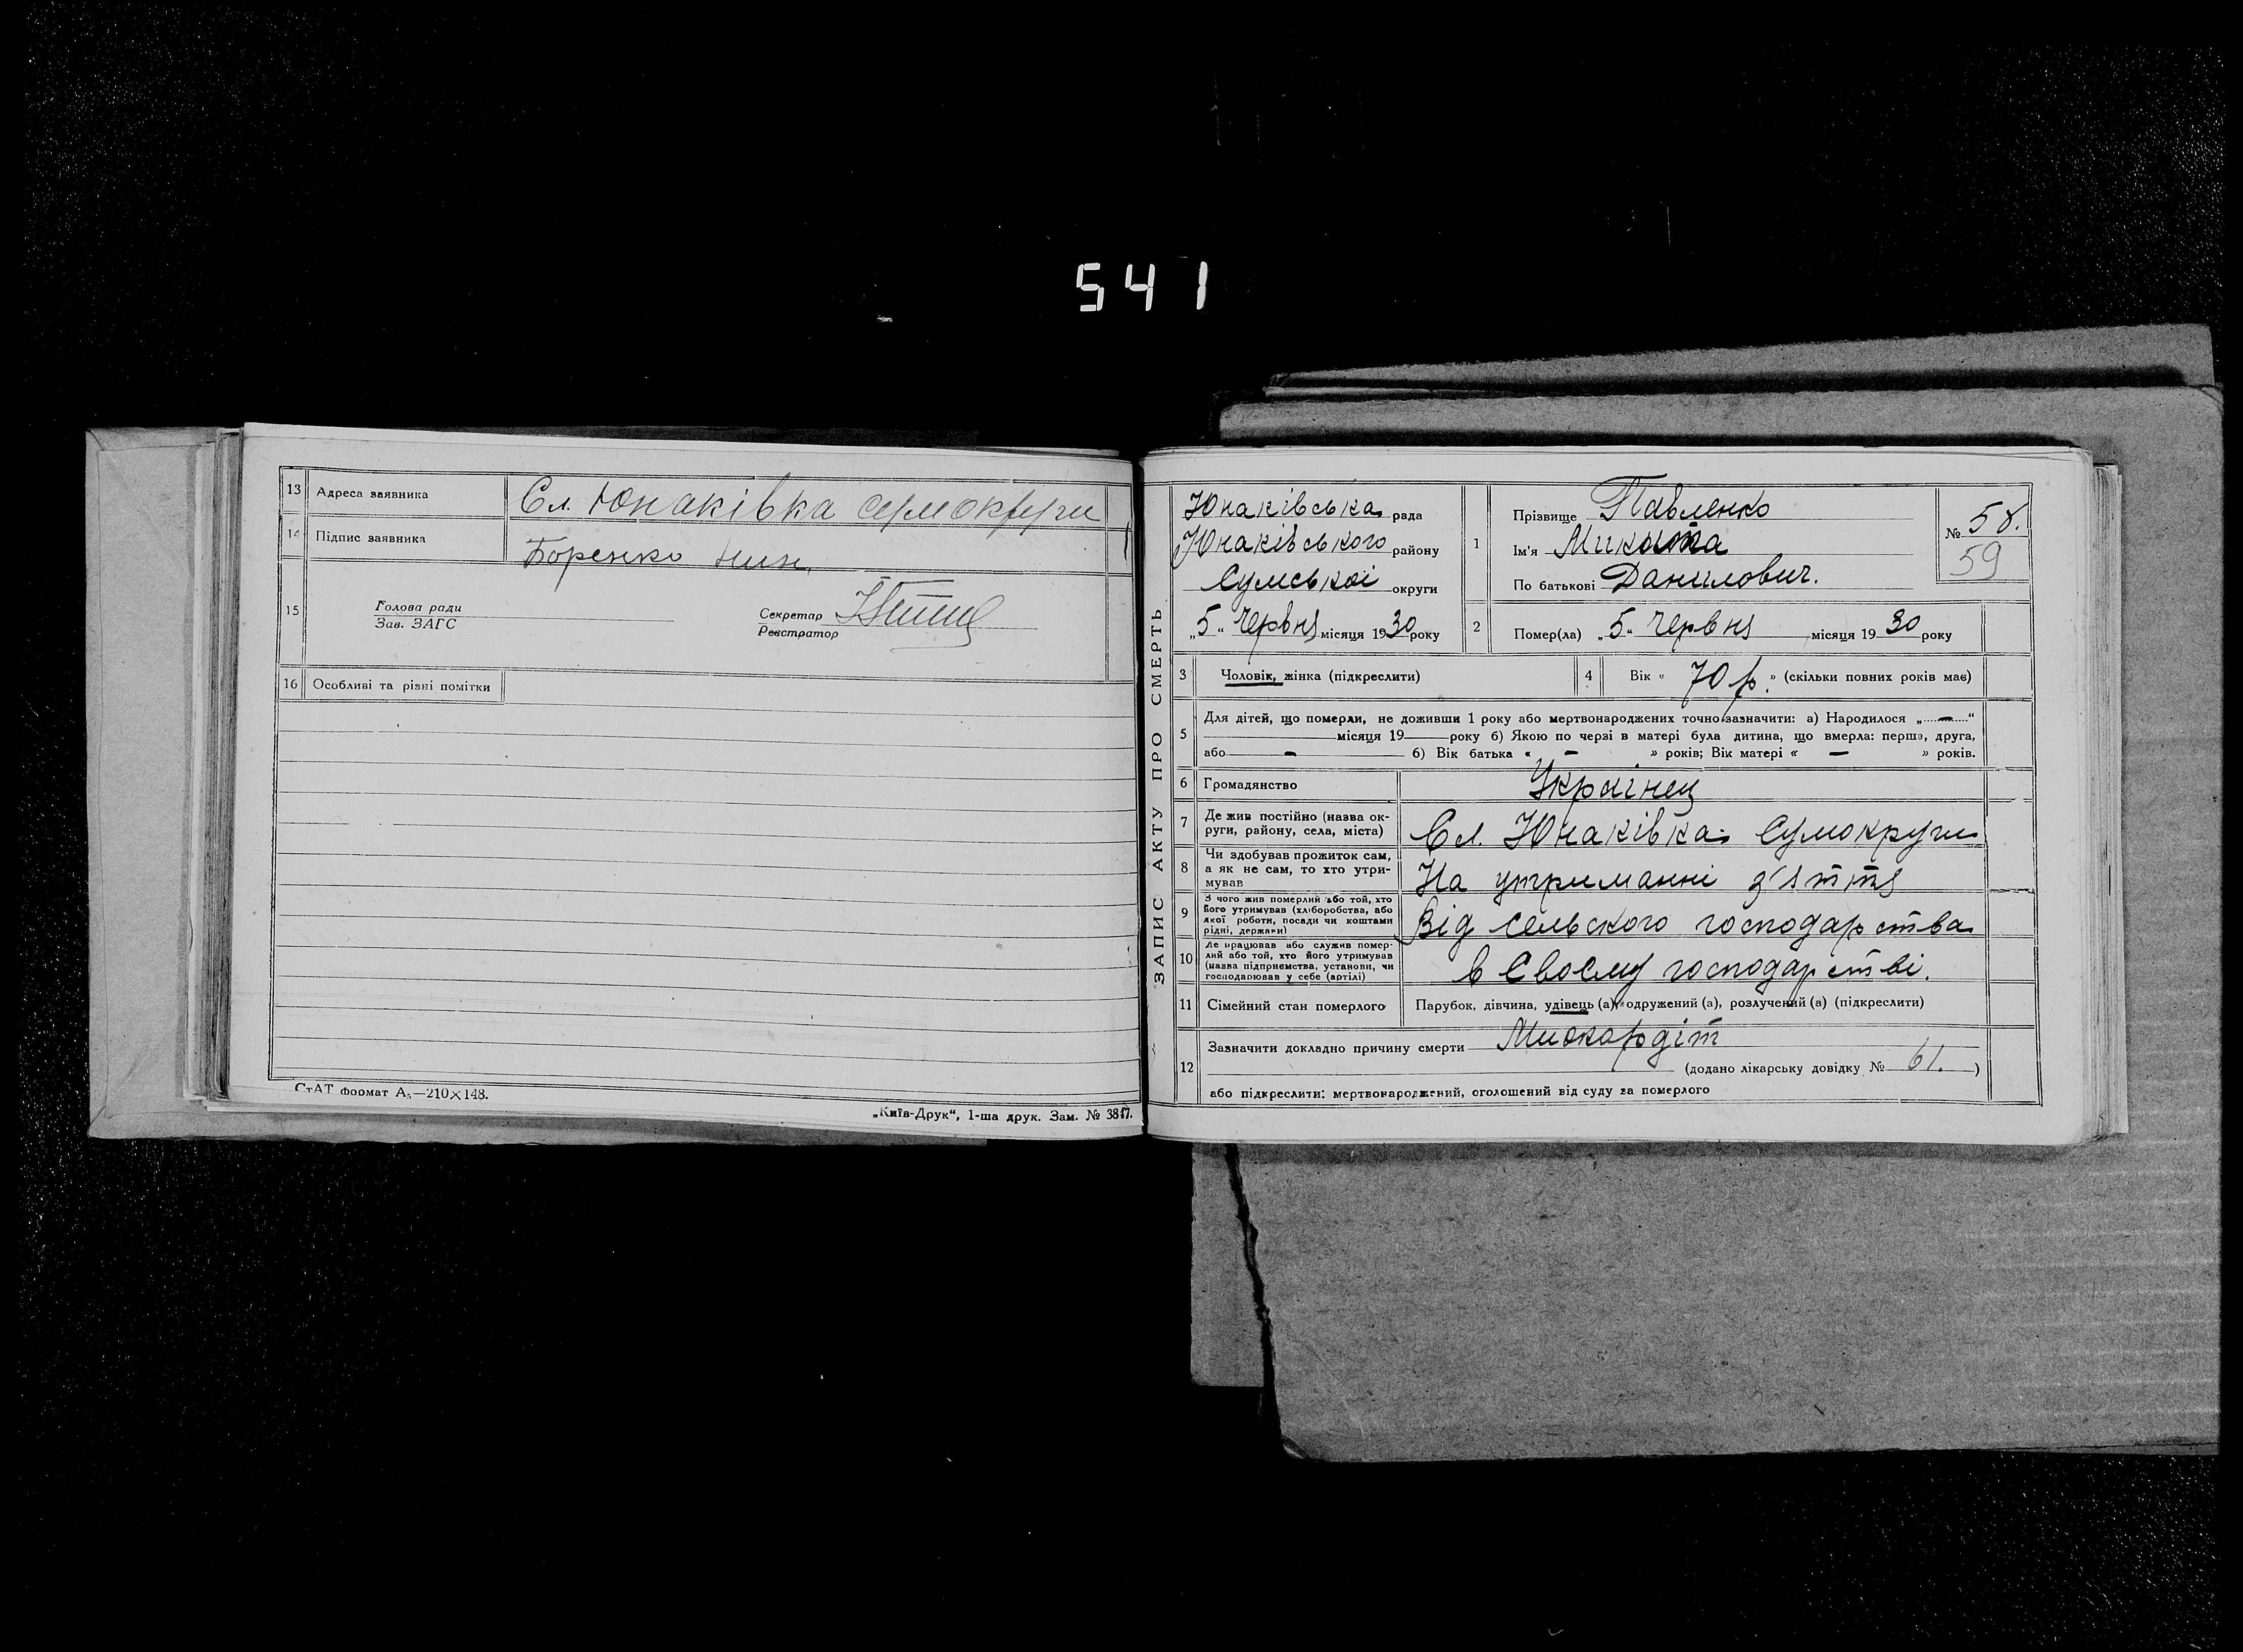 541
13 Адреса заявника Сл. Юнаківка сумокруги
14 Підпис заявника Боренко
15 Голова ради
Зав. ЗАГС
Секретар
Реєстратор
16 Особливі та різні помітки
СтАТ формат А₅—210×148.
„Київ-Друк“, 1-ша друк. Зам. № 3817.
ЗАПИС АКТУ ПРО СМЕРТЬ
Юнаківська рада
Юнаківського району
Сумської округи
„5“ Червня місяця 1930 року
1 Прізвище Павленко
Ім'я Микита
По батькові Данилович.
№ 58.
59
2 Помер(ла) „5“ Червня місяця 1930 року
3 Чоловік, жінка (підкреслити)
4 Вік « 70 р. » (скільки повних років має)
5 Для дітей, що померли, не доживши 1 року або мертвонароджених точно зазначити: а) Народилося „ — “
місяця 19 — року б) Якою по черзі в матері була дитина, що вмерла: перша, друга,
або — б) Вік батька « — » років; Вік матері « — » років.
6 Громадянство Українец
7 Де жив постійно (назва ок-
руги, району, села, міста) Сл. Юнаківка Сумокруги
8 Чи здобував прожиток сам,
а як не сам, то хто утри-
мував На утриманні з'яття
9 З чого жив померлий або той, хто
його утримував (хліборобства, або
якої роботи, посади чи коштами
рідні, держави) Від сельского господарства
10 Де працював або служив помер-
лий або той, хто його утримував
(назва підприємства, установи, чи
господарював у себе (артілі) в Своєму господарстві.
11 Сімейний стан померлого Парубок, дівчина, удівець (а), одружений (а), розлучений (а) (підкреслити)
12 Зазначити докладно причину смерти Миокардіт
(додано лікарську довідку № 61. )
або підкреслити: мертвонароджений, оголошений від суду за померлого